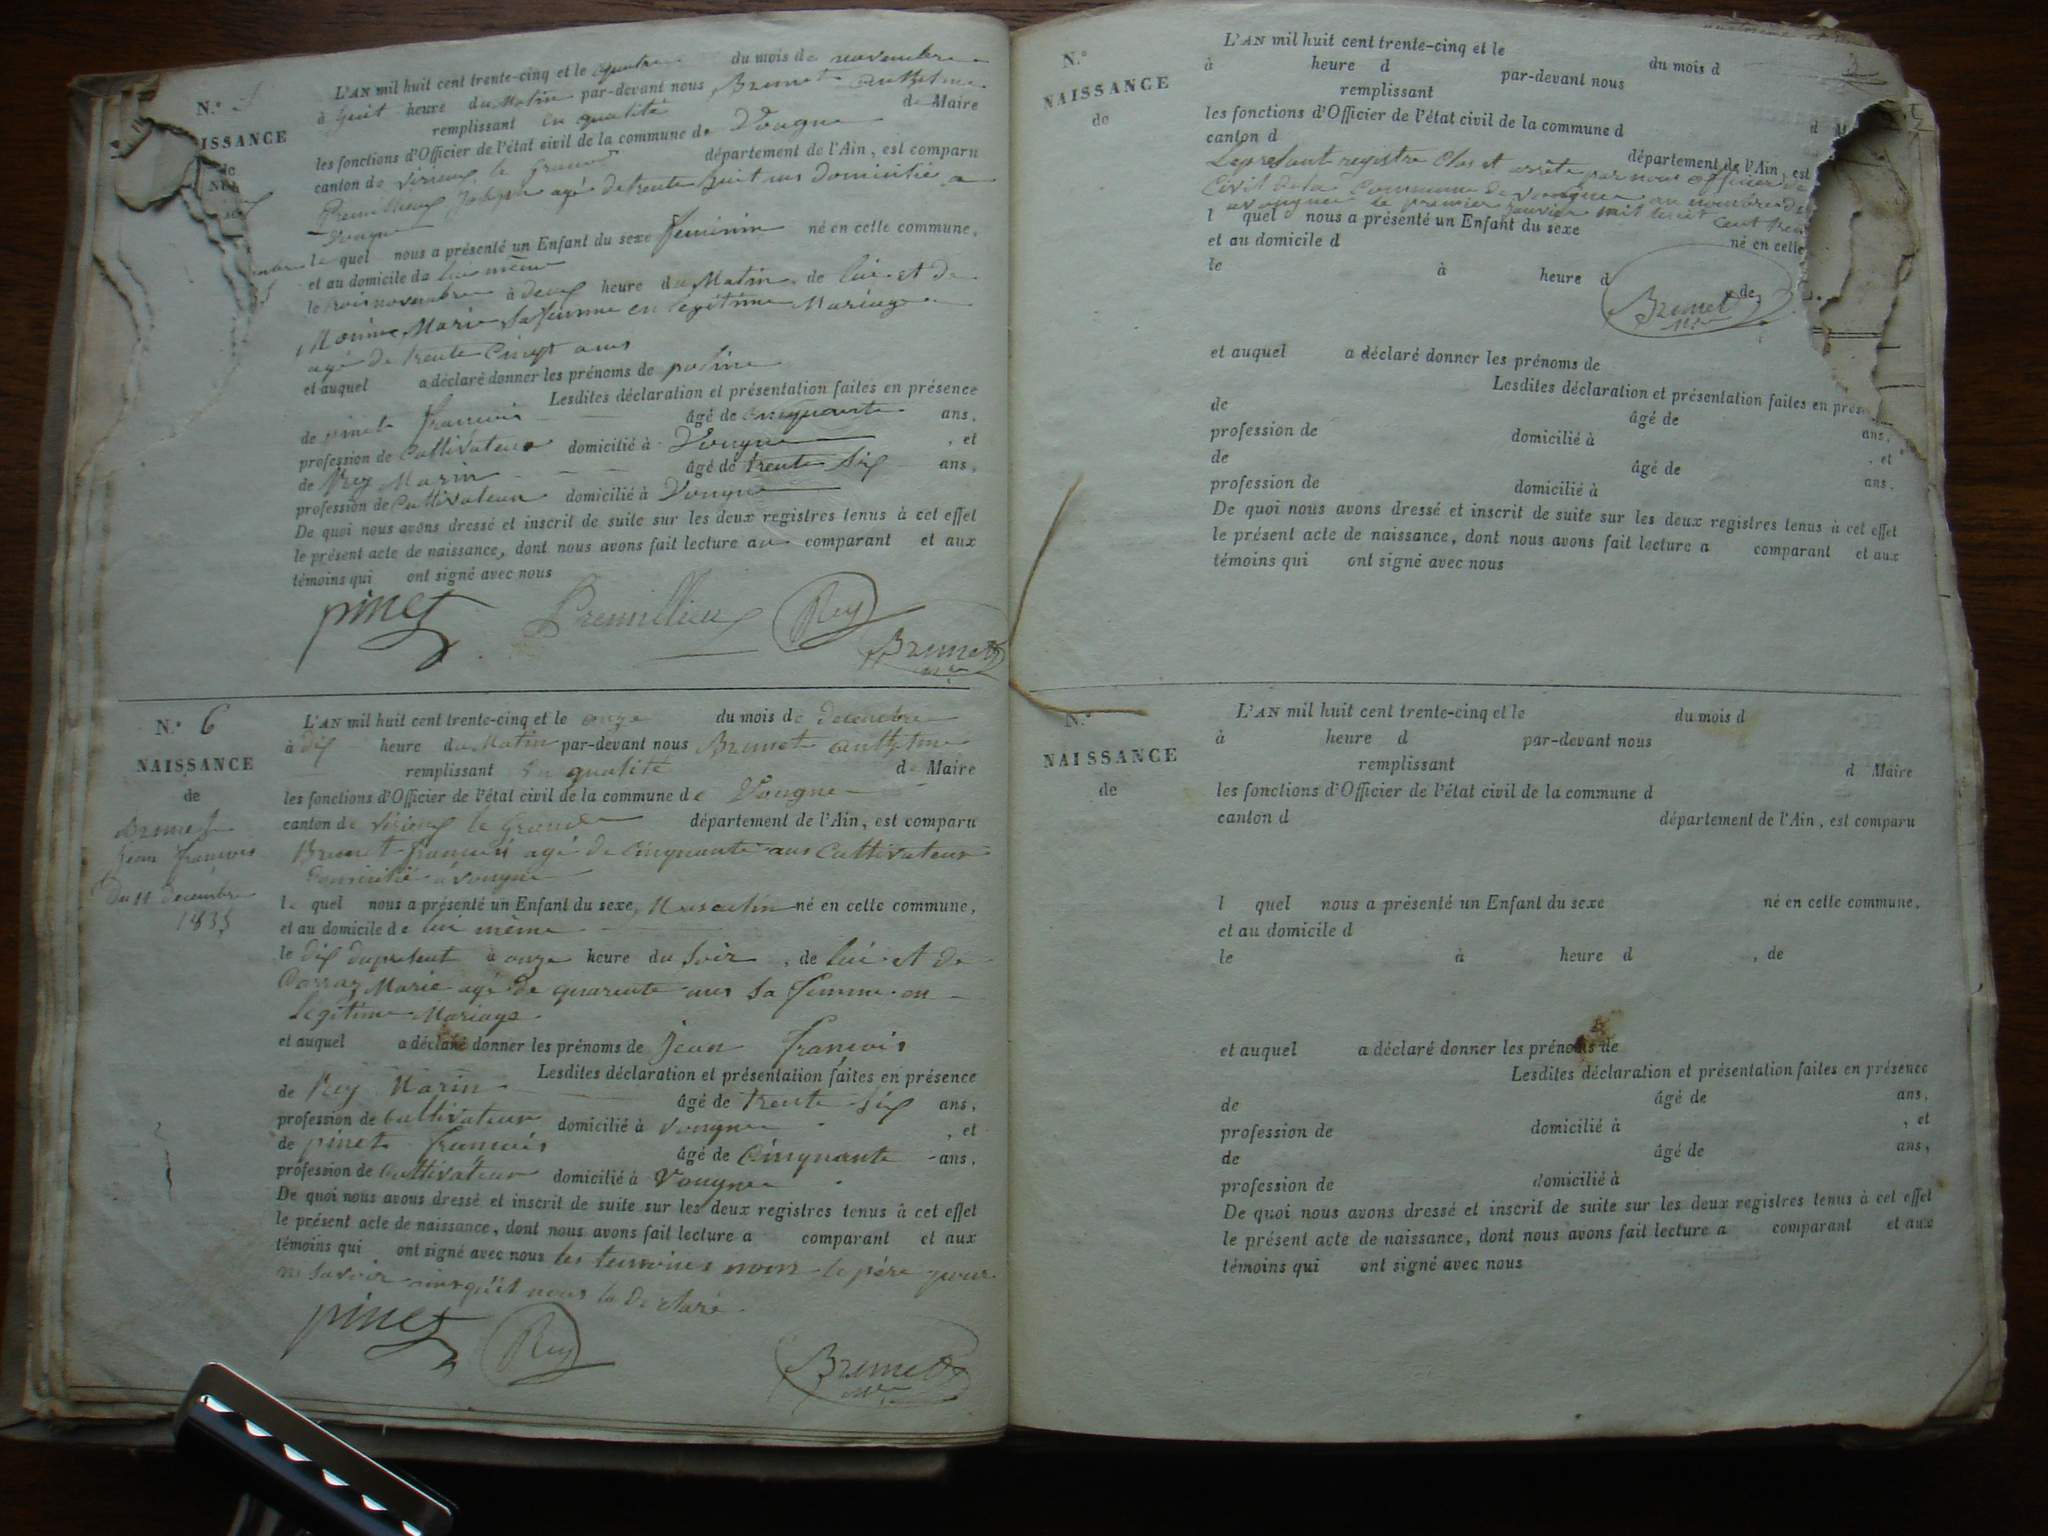 N.° 5
ISSANCE
de
L'AN mil huit cent trente-cinq et le quatre du mois de novembre
à huit heure du Matin par-devant nous Brunet anthelme
remplissant en qualité de Maire
les fonctions d'Officier de l'état civil de la commune de Vongne
canton de Virieux le Grand département de l'Ain, est comparu
Premillieux Joseph agé de trente huit ans domicilié a
Vongne
le quel nous a présenté un Enfant du sexe feminin né en cette commune,
et au domicile de lui même
le trois novembre à deux heure du Matin de lui et de
Marie sa femme en légitime Mariage
agé de trente cinq ans
et auquel a déclaré donner les prénoms de poline
Lesdites déclaration et présentation faites en présence
de pinet francois âgé de cinquante ans,
profession de Cultivateur domicilié à Vongne , et
de Rey Marin âgé de trente six ans,
profession de Cultivateur domicilié à Vongne
De quoi nous avons dressé et inscrit de suite sur les deux registres tenus à cet effet
le présent acte de naissance, dont nous avons fait lecture au comparant et aux
témoins qui ont signé avec nous
pinet Premillieux Rey
Brunet
mre
N.° 6
NAISSANCE
de
Brunet
jean francois
Du 11 decembre
1835
L'AN mil huit cent trente-cinq et le onze du mois de decembre
à dix heure du Matin par-devant nous Brunet anthelme
remplissant en qualité de Maire
les fonctions d'Officier de l'état civil de la commune de Vongne
canton de Virieux le Grand département de l'Ain, est comparu
Brunet francois agé de cinquante ans Cultivateur
domicilié a Vongne
le quel nous a présenté un Enfant du sexe Masculin né en cette commune,
et au domicile de lui même
le dix du present à onze heure du soir , de lui et de
Marie agé de quarente ans sa femme en
légitime Mariage
et auquel a déclaré donner les prénoms de jean francois
Lesdites déclaration et présentation faites en présence
de Rey Marin âgé de trente six ans,
profession de cultivateur domicilié à Vongne , et
de pinet francois âgé de Cinquante ans,
profession de Cultivateur domicilié à Vongne
De quoi nous avons dressé et inscrit de suite sur les deux registres tenus à cet effet
le présent acte de naissance, dont nous avons fait lecture a comparant et aux
témoins qui ont signé avec nous les temoins non le père pour
ne savoir nous la declaré
pinet Rey
Brunet
mre
N.°
NAISSANCE
de
L'AN mil huit cent trente-cinq et le du mois d
à heure d par-devant nous
remplissant d M
les fonctions d'Officier de l'état civil de la commune d
canton d département de l'Ain, est
Le present registre Clos et arrêté par nous officier de
Civil de la Commune de Vongne au nombre de
a vongne le premier janvier mil huit Cent tren
l quel nous a présenté un Enfant du sexe né en cette
et au domicile d
le à heure d , de
Brunet
mre
et auquel a déclaré donner les prénoms de
Lesdites déclaration et présentation faites en prés
de âgé de ans,
profession de domicilié à , et
de âgé de ans,
profession de domicilié à
De quoi nous avons dressé et inscrit de suite sur les deux registres tenus à cet effet
le présent acte de naissance, dont nous avons fait lecture a comparant et aux
témoins qui ont signé avec nous
N.°
NAISSANCE
de
L'AN mil huit cent trente-cinq et le du mois d
à heure d par-devant nous
remplissant d Maire
les fonctions d'Officier de l'état civil de la commune d
canton d département de l'Ain, est comparu
l quel nous a présenté un Enfant du sexe né en cette commune,
et au domicile d
le à heure d , de
et auquel a déclaré donner les prénoms de
Lesdites déclaration et présentation faites en présence
de âgé de ans,
profession de domicilié à , et
de âgé de ans,
profession de domicilié à
De quoi nous avons dressé et inscrit de suite sur les deux registres tenus à cet effet
le présent acte de naissance, dont nous avons fait lecture a comparant et aux
témoins qui ont signé avec nous